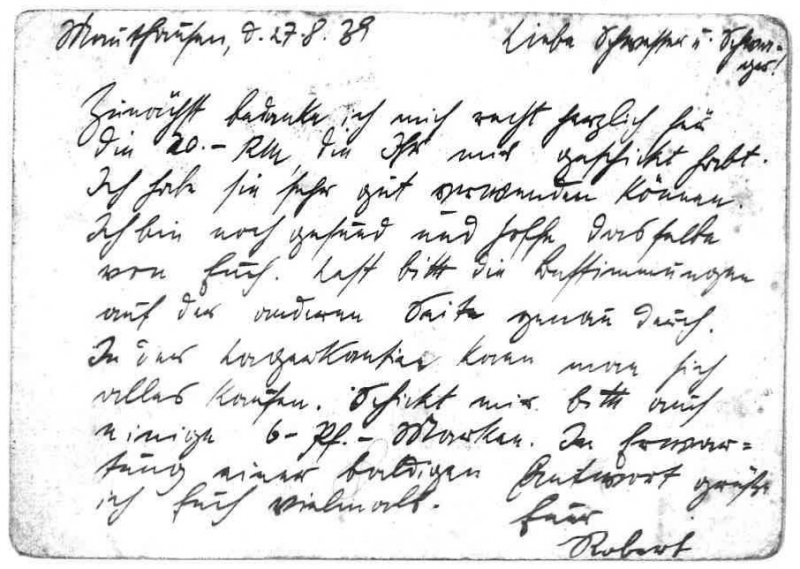 Mauthausen, d. 27.8.39 Liebe Schwester u. Schwa-
ger!
Zunächst bedanke ich mich recht herzlich für
die 20.- RM, die Ihr mir geschickt habt.
Ich habe sie sehr gut verwenden können.
Ich bin noch gesund und hoffe dasselbe
von Euch. Lest bitte die Bestimmungen
auf der anderen Seite genau durch.
In der Lagerkantine kann man sich
alles kaufen. Schickt mir bitte auch
einige 6-Pf.-Marken. In Erwar=
tung einer baldigen Antwort grüße
ich Euch vielmals.
Euer
Robert